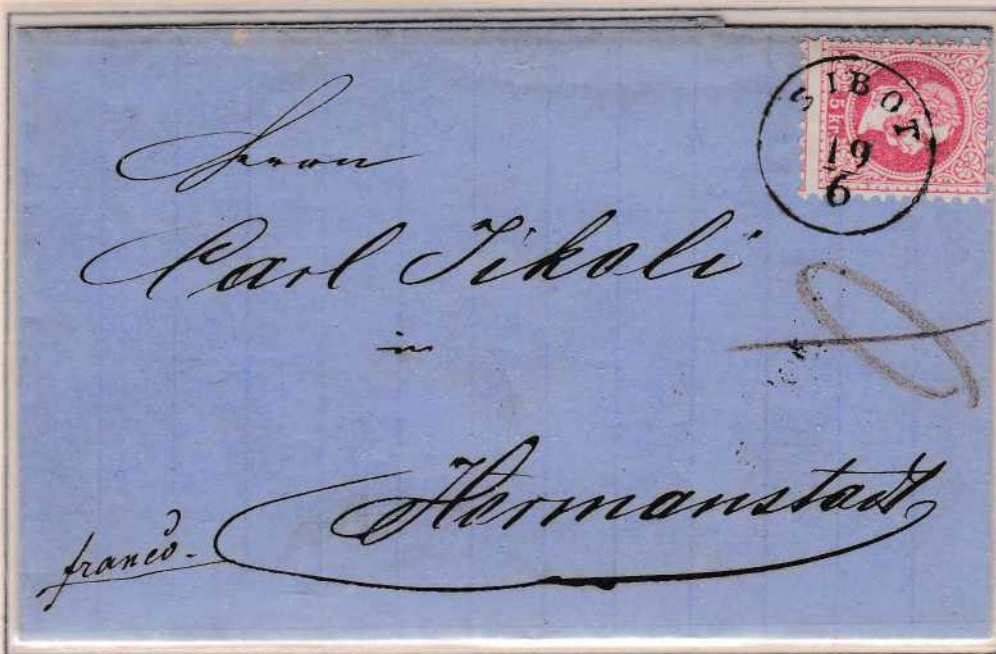 SIBOT
19
6
5 kr
Herrn
Carl Jikeli
in
Hermanstadt
franco.